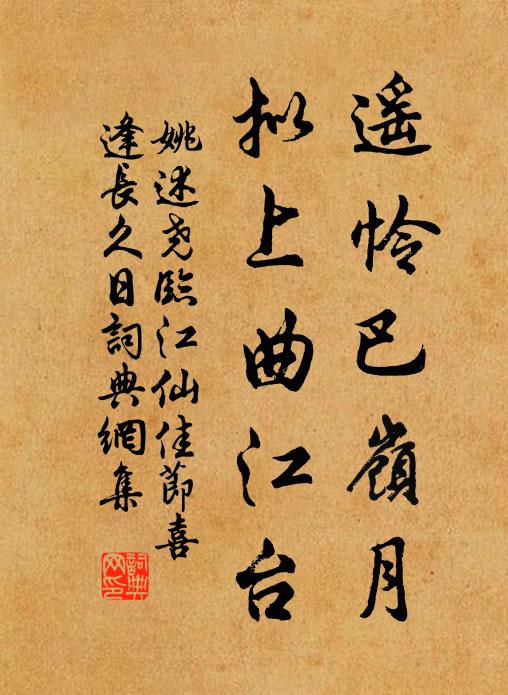 遥怜巴嶺月
拟上曲江台
姚述尧臨江仙佳節喜
逢長久日詞典網集
詞典网印